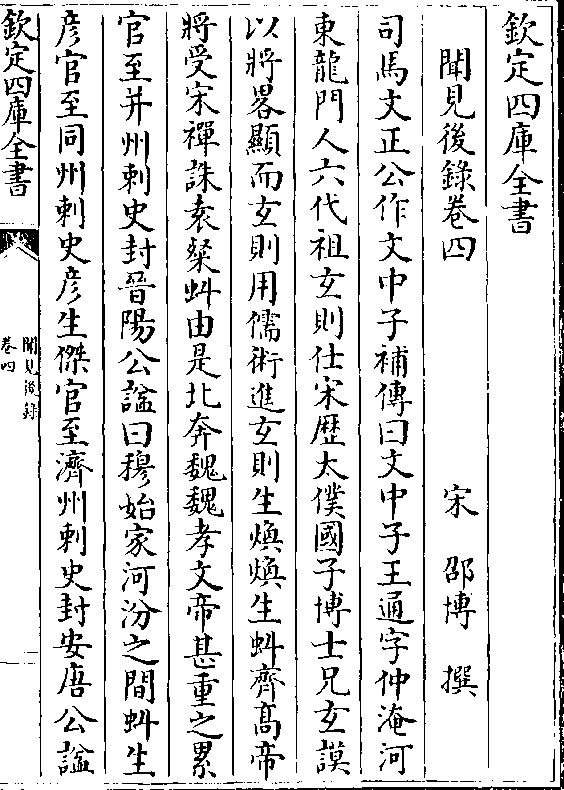 欽定四庫全書
聞見後錄卷四
宋 邵博 撰
司馬文正公作文中子補傳曰文中子王通字仲淹河
東龍門人六代祖玄則仕宋歴太僕國子博士兄玄謨
以將畧顯而玄則用儒術進玄則生煥煥生虯齊髙帝
將受宋禪誅袁粲虯由是北奔魏魏孝文帝甚重之累
官至并州刺史封晉陽公諡曰穆始家河汾之間虯生
彦官至同州刺史彦生傑官至濟州刺史封安唐公諡
欽定四庫全書
聞見後錄
卷四